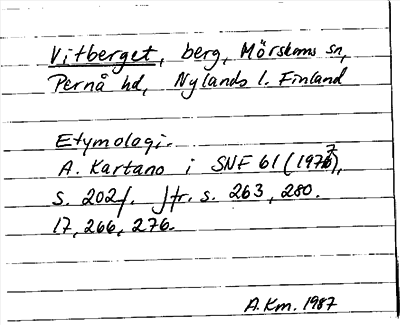 Vitberget, berg, Mörskoms sn,
Pernå hd, Nylands l. Finland
Etymologi.
A. Kartano i SNF 61 (1977),
s. 202f. Jfr. s. 263, 280.
17, 266, 276.
A.Km. 1987